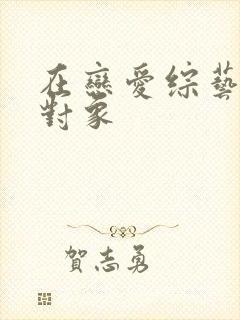 在戀愛綜藝
對象
賀志勇